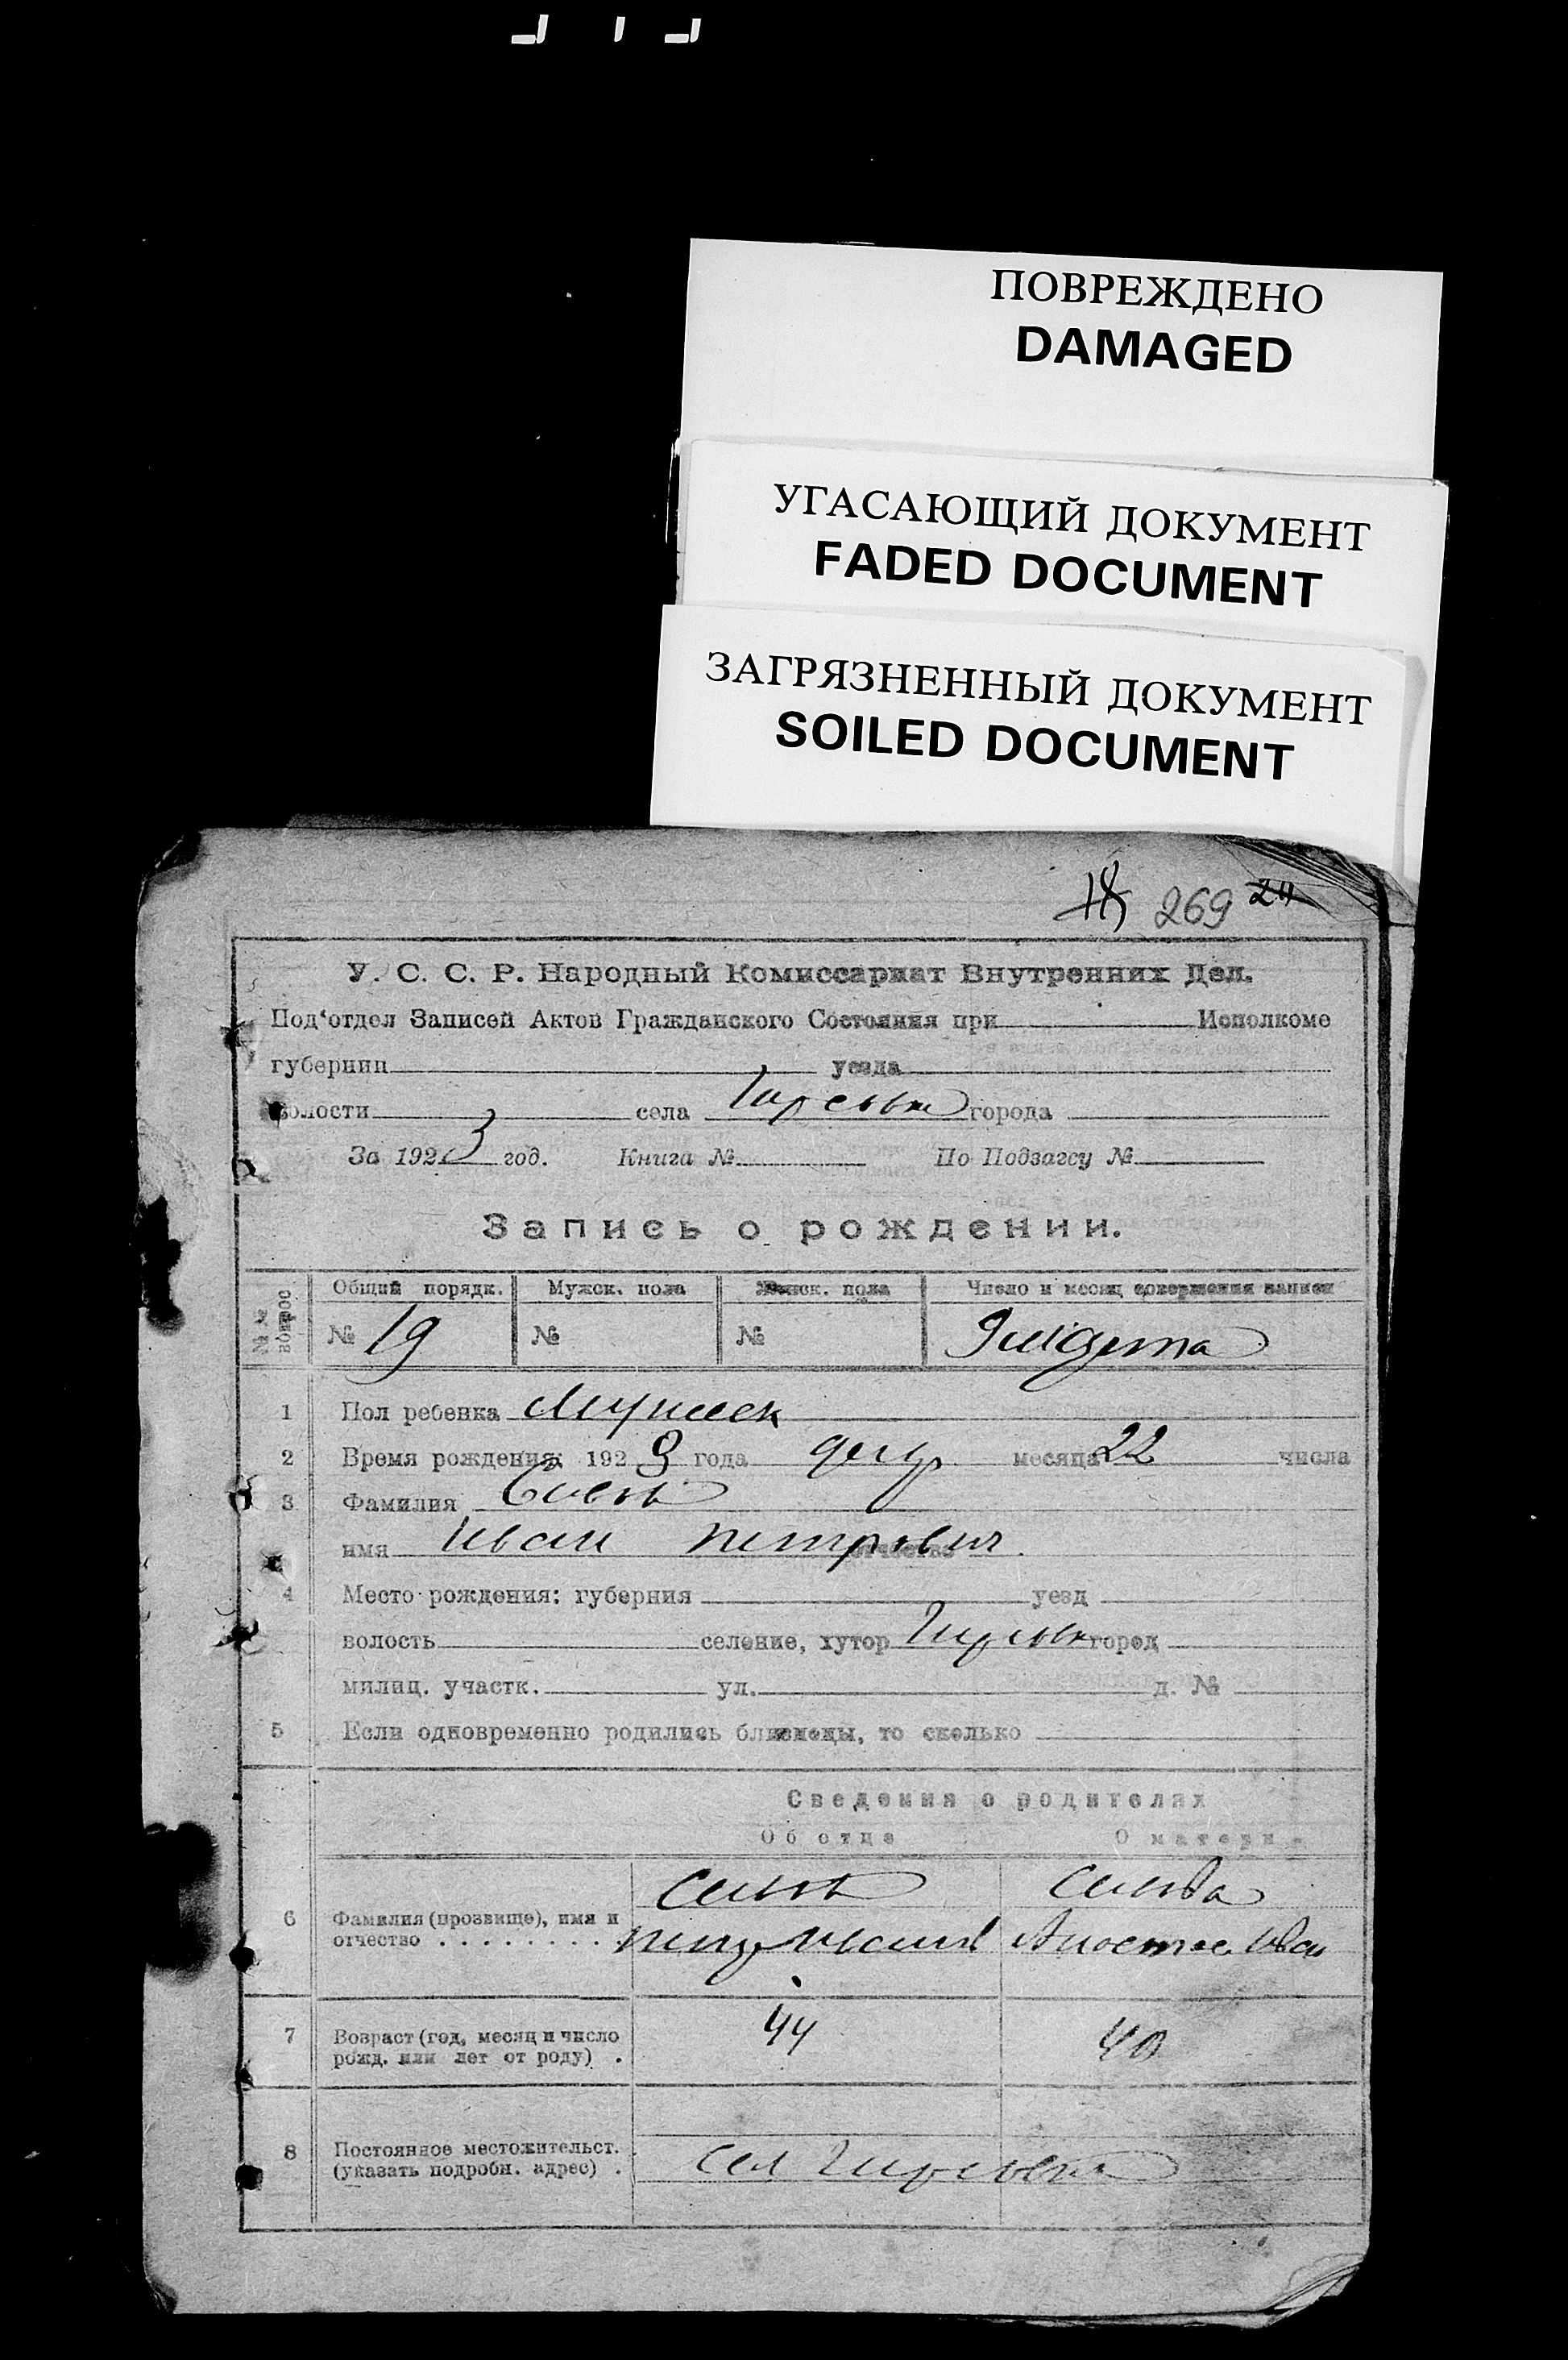 ПОВРЕЖДЕНО
DAMAGED
УГАСАЮЩИЙ ДОКУМЕНТ
FADED DOCUMENT
ЗАГРЯЗНЕННЫЙ ДОКУМЕНТ
SOILED DOCUMENT
18 269 24
У. С. С. Р. Народный Комиссариат Внутренних Дел.
Под‘отдел Записей Актов Гражданского Состояния при Исполкоме
губернии уезда
волости села города
За 1923 год. Книга № По Подзагсу №
Запись о рождении.
№№ вопрос Общий порядк. Мужск. пола Женск. пола Число и месяц совершения записи
№ 19 № №
1 Пол ребенка
2 Время рождения: 1923 года месяца 22 числа
3 Фамилия
имя Иван отчество Петрович
4 Место рождения: губерния уезд
волость селение, хутор город
милиц. участк. ул. д. №
5 Если одновременно родились близнецы, то сколько
Сведения о родителях
Об отце О матери
6 Фамилия (прозвище), имя и
отчество
7 Возраст (год, месяц и число 44 40
рожд. или лет от роду) .
8 Постоянное местожительст.
(указать подробн. адрес) . сел